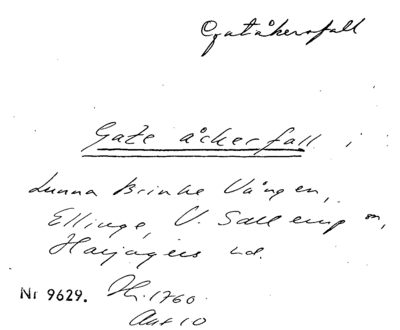 Gatåkersfall
Gate åckerfall i
Lunna Brinke Vången,
Ellinge, V. Sallerup sn,
Harjagers hd.
Nr 9629. Hr. 1760.
Aut 10